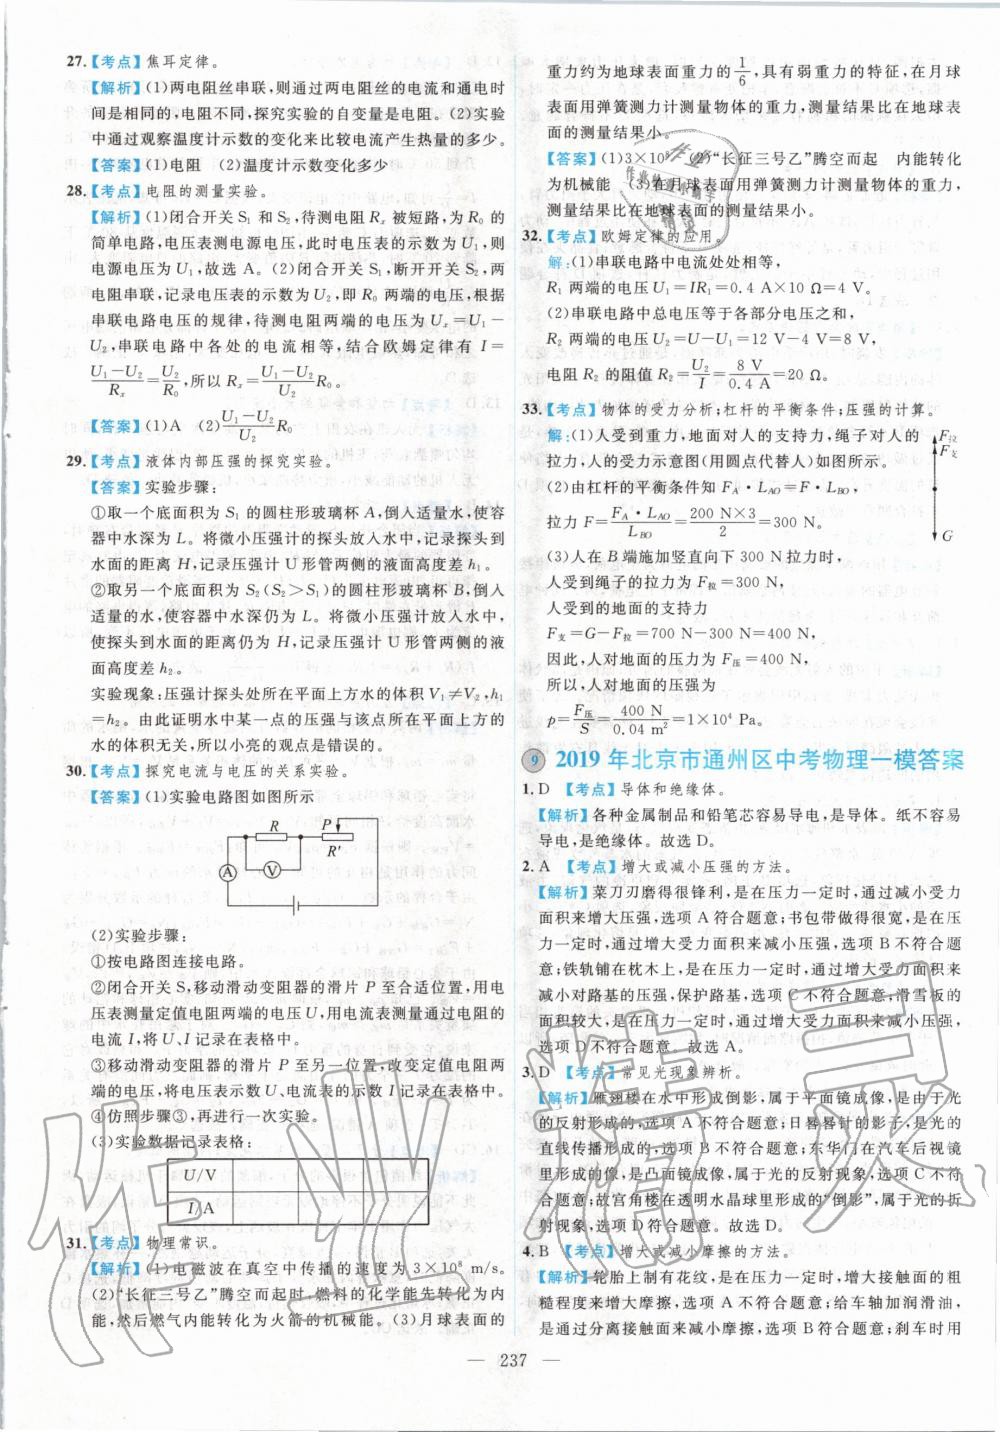 27.【考点】焦耳定律。
【解析】(1)两电阻丝串联,则通过两电阻丝的电流和通电时
间是相同的,电阻不同,探究实验的自变量是电阻。(2)实验
中通过观察温度计示数的变化来比较电流产生热量的多少。
【答案】(1)电阻 (2)温度计示数变化多少
28.【考点】电阻的测量实验。
【解析】(1)闭合开关 S₁ 和 S₂,待测电阻 Rₓ 被短路,为 R₀ 的
简单电路,电压表测电源电压,此时电压表的示数为 U₁,则
电源电压为 U₁,故选 A。(2)闭合开关 S₁,断开开关 S₂,两
电阻串联,记录电压表的示数为 U₂,即 R₀ 两端的电压,根据
串联电路电压的规律,待测电阻两端的电压为 Uₓ=U₁-
U₂,串联电路中各处的电流相等,结合欧姆定律有 I=
(U₁-U₂)/Rₓ=U₂/R₀,所以 Rₓ=(U₁-U₂)/U₂ R₀。
【答案】(1)A (2)(U₁-U₂)/U₂ R₀
29.【考点】液体内部压强的探究实验。
【答案】实验步骤:
①取一个底面积为 S₁ 的圆柱形玻璃杯 A,倒人适量水,使容
器中水深为 L。将微小压强计的探头放人水中,记录探头到
水面的距离 H,记录压强计 U 形管两侧的液面高度差 h₁。
②取另一个底面积为 S₂(S₂>S₁)的圆柱形玻璃杯 B,倒人
适量的水,使容器中水深仍为 L。将微小压强计放人水中,
使探头到水面的距离仍为 H,记录压强计 U 形管两侧的液
面高度差 h₂。
实验现象:压强计探头处所在平面上方水的体积 V₁≠V₂,h₁
=h₂。由此证明水中某一点的压强与该点所在平面上方的
水的体积无关,所以小亮的观点是错误的。
30.【考点】探究电流与电压的关系实验。
【答案】(1)实验电路图如图所示
R P
R′
A V
(2)实验步骤:
①按电路图连接电路。
②闭合开关 S,移动滑动变阻器的滑片 P 至合适位置,用电
压表测量定值电阻两端的电压 U,用电流表测量通过电阻的
电流 I,将 U、I 记录在表格中。
③移动滑动变阻器的滑片 P 至另一位置,改变定值电阻两
端的电压,将电压表示数 U、电流表的示数 I 记录在表格中。
④仿照步骤③,再进行一次实验。
(3)实验数据记录表格:
U/V
I/A
31.【考点】物理常识。
【解析】(1)电磁波在真空中传播的速度为 3×10⁸ m/s。
(2)“长征三号乙”腾空而起时,燃料的化学能先转化为内
能,然后燃气内能转化为火箭的机械能。(3)月球表面的
重力约为地球表面重力的 1/6,具有弱重力的特征,在月球
表面用弹簧测力计测量物体的重力,测量结果比在地球表
面的测量结果小。
【答案】(1)3×10⁸ (2)“长征三号乙”腾空而起 内能转化
为机械能 (3)在月球表面用弹簧测力计测量物体的重力,
测量结果比在地球表面的测量结果小。
32.【考点】欧姆定律的应用。
解:(1)串联电路中电流处处相等,
R₁ 两端的电压 U₁=IR₁=0.4 A×10 Ω=4 V。
(2)串联电路中总电压等于各部分电压之和,
R₂ 两端的电压 U₂=U-U₁=12 V-4 V=8 V,
电阻 R₂ 的阻值 R₂=U₂/I=8 V/0.4 A=20 Ω。
33.【考点】物体的受力分析;杠杆的平衡条件;压强的计算。
解:(1)人受到重力,地面对人的支持力,绳子对人的
拉力,人的受力示意图(用圆点代替人)如图所示。
(2)由杠杆的平衡条件知 F_A·L_AO=F·L_BO,
拉力 F=F_A·L_AO/L_BO=200 N×3/2=300 N。
(3)人在 B 端施加竖直向下 300 N拉力时,
人受到绳子的拉力为 F拉=300 N,
人受到的地面的支持力
F支=G-F拉=700 N-300 N=400 N,
因此,人对地面的压力为 F压=400 N,
所以,人对地面的压强为
p=F压/S=400 N/0.04 m²=1×10⁴ Pa。
F拉
F支
G
9 2019 年北京市通州区中考物理一模答案
1. D 【考点】导体和绝缘体。
【解析】各种金属制品和铅笔芯容易导电,是导体。纸不容易
导电,是绝缘体。故选 D。
2. A 【考点】增大或减小压强的方法。
【解析】菜刀刃磨得很锋利,是在压力一定时,通过减小受力
面积来增大压强,选项 A 符合题意;书包带做得很宽,是在压
力一定时,通过增大受力面积来减小压强,选项 B 不符合题
意;铁轨铺在枕木上,是在压力一定时,通过增大受力面积来
减小对路基的压强,保护路基,选项 C 不符合题意;滑雪板的
面积较大,是在压力一定时,通过增大受力面积来减小压强,
选项 D 不符合题意。故选 A。
3. D 【考点】常见光现象辨析。
【解析】雁翅楼在水中形成倒影,属于平面镜成像,是由于光
的反射形成的,选项 A 不符合题意;日晷晷针的影子,是光的
直线传播形成的,选项 B 不符合题意;东华门在汽车后视镜
里形成的像,是凸面镜成像,属于光的反射现象,选项 C 不符
合题意;故宫角楼在透明水晶球里形成的“倒影”,属于光的折
射现象,选项 D 符合题意。故选 D。
4. B 【考点】增大或减小摩擦的方法。
【解析】轮胎上制有花纹,是在压力一定时,增大接触面的粗
糙程度来增大摩擦,选项 A 不符合题意;给车轴加润滑油,
是通过分离接触面来减小摩擦,选项 B 符合题意;刹车时用
— 237 —
作业精灵